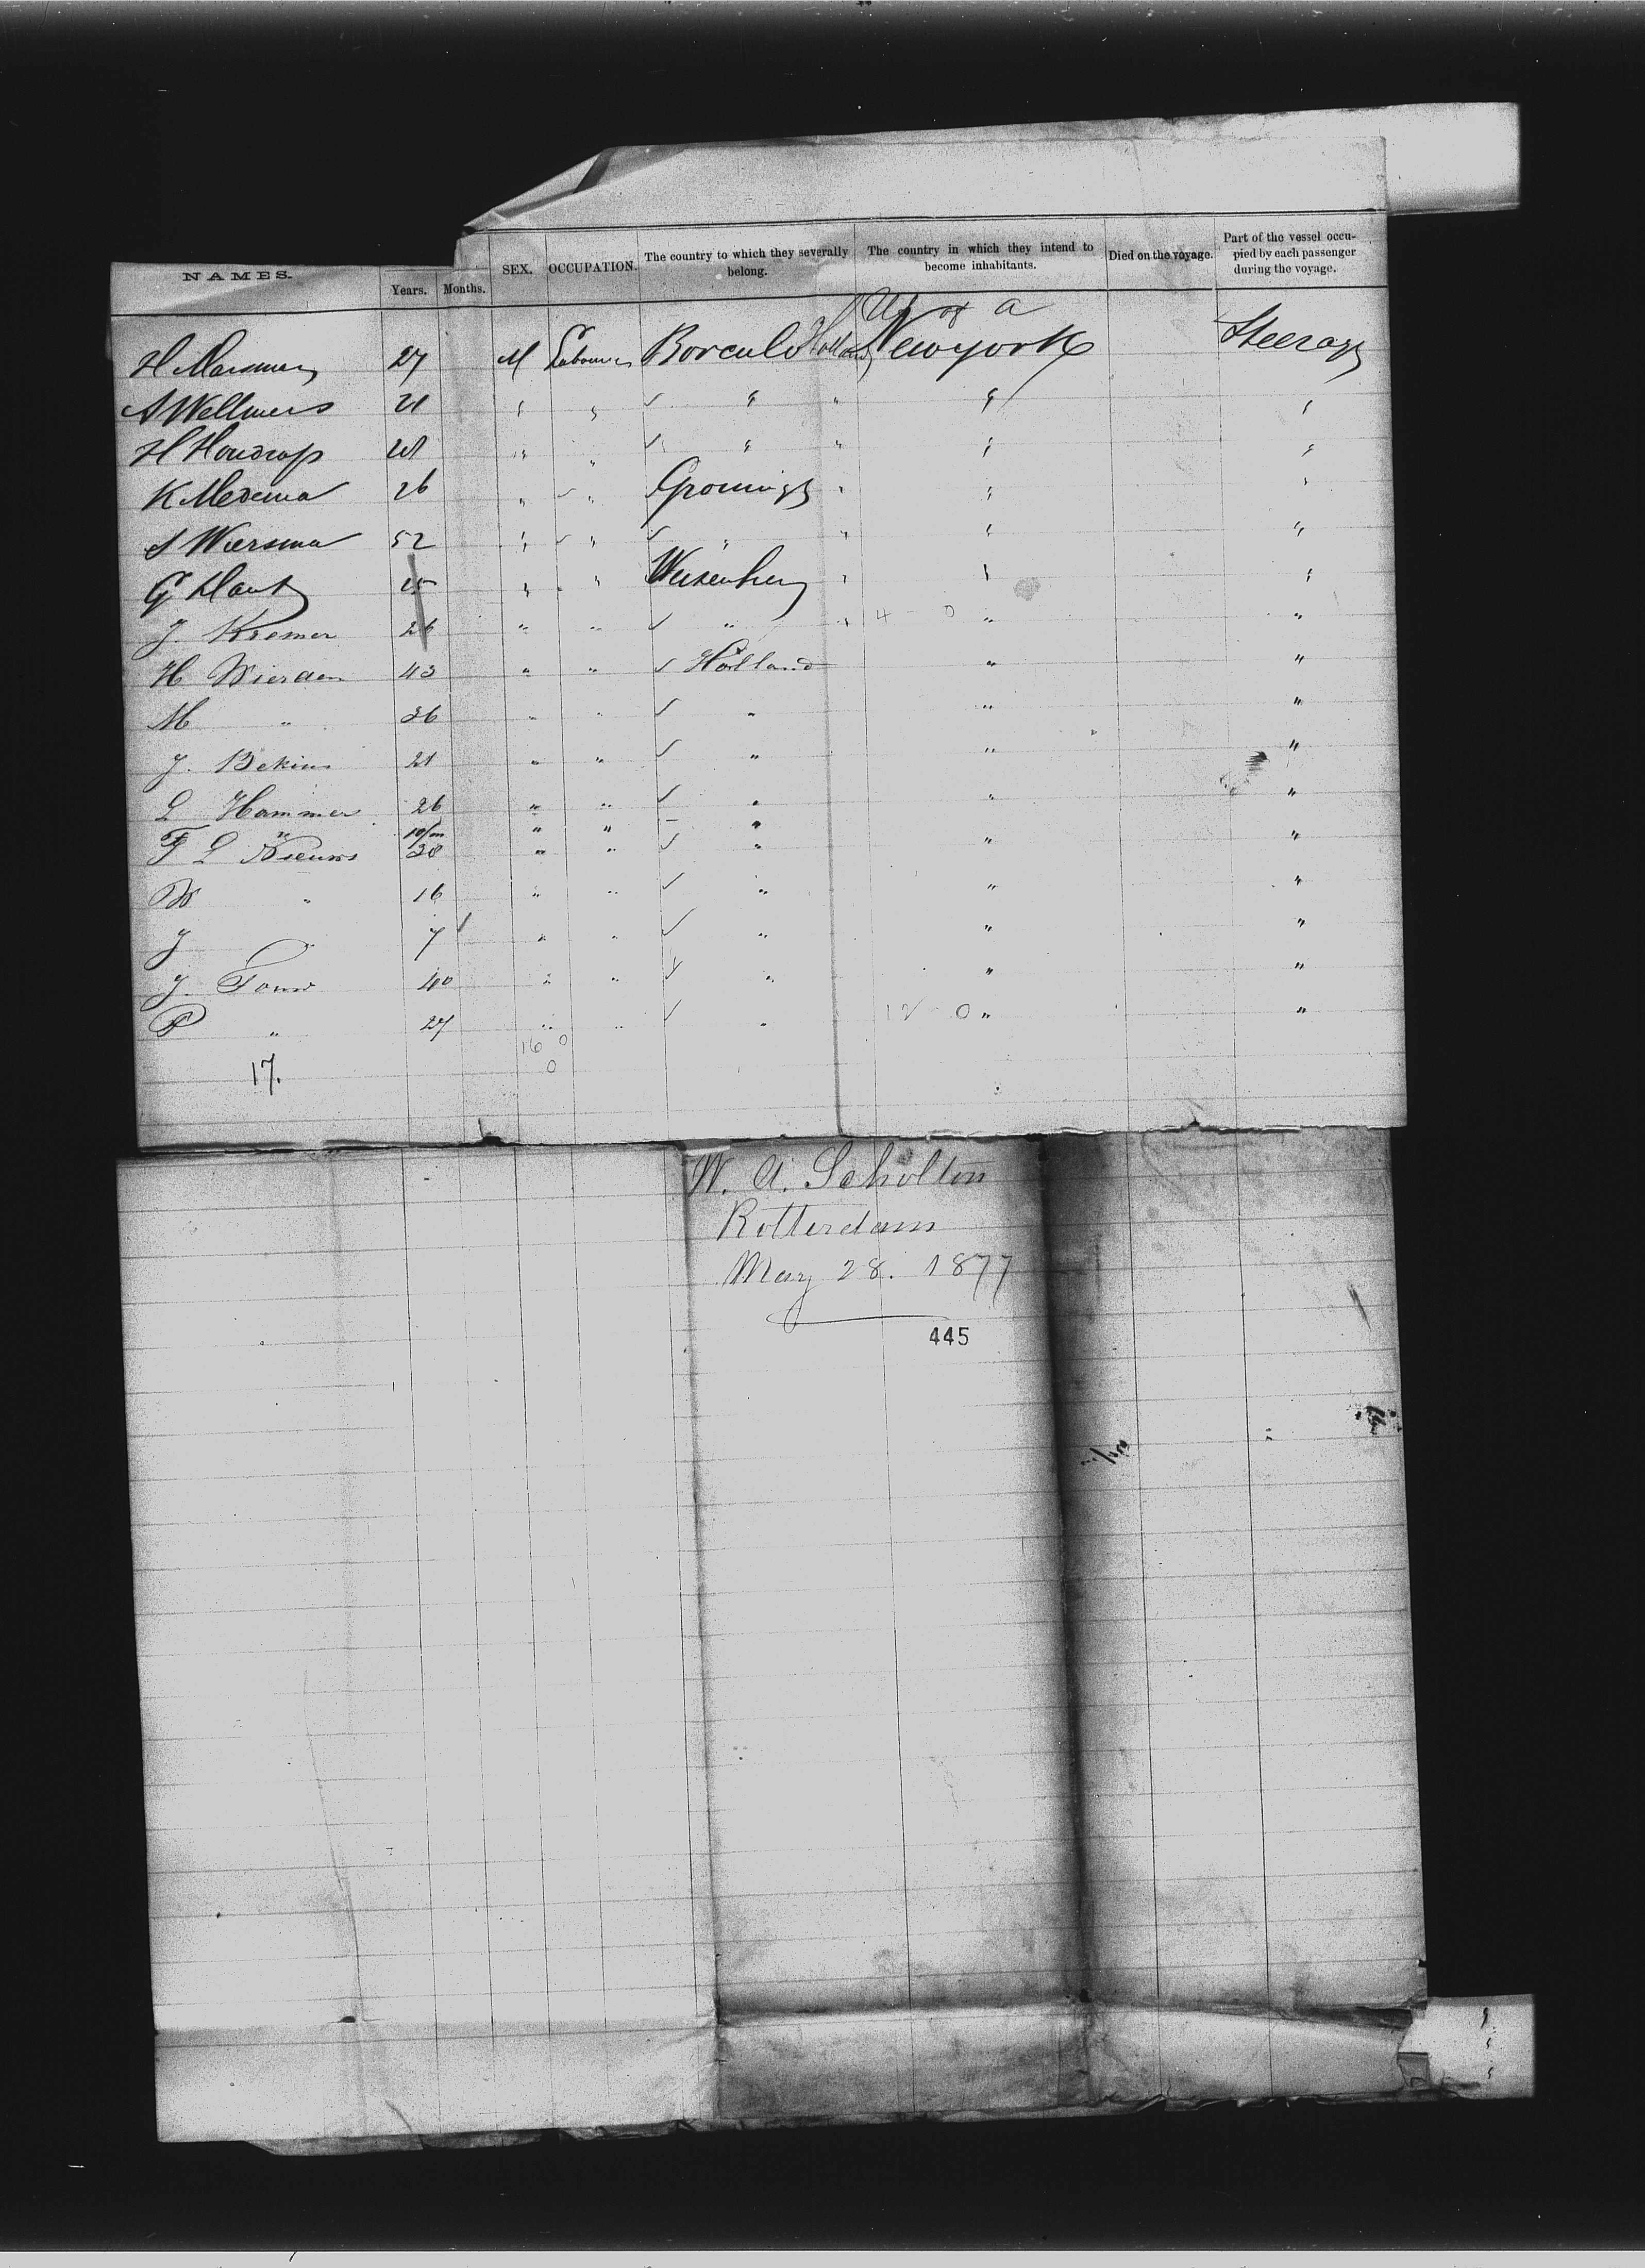 NAMES. Years. Months. SEX. OCCUPATION. The country to which they severally belong. The country in which they intend to become inhabitants. Died on the voyage. Part of the vessel occupied by each passenger during the voyage.
U S of a
H Marsmen 27 M Labourer Borculo Holland Newyork Steerage
A Wellmers 21 " " ✓ " " " "
H Hondrop 28 " " ✓ " " " "
K Medema 26 " ✓ " Groningen " " "
S Wiersma 52 " ✓ " ✓ " " " "
G Hart 25 " " " "
J. Kremer 26 " " ✓ " " 4 - 0 " "
H Wierden 43 " " ✓ Holland " "
M " 36 " " ✓ " " "
J. Bekius 21 " " ✓ " " "
L Hammer 26 " " ✓ " " "
" 10/m " " - "
F L Nieuws 38 " " ✓ " " "
W " 16 " " ✓ " " "
J 7 " " ✓ " " "
J. Touw 40 " " ✓ " " "
P " 27 " " ✓ " 12 - 0 " "
16 0
17. 0
W. A. Scholten
Rotterdam
May 28. 1877
445